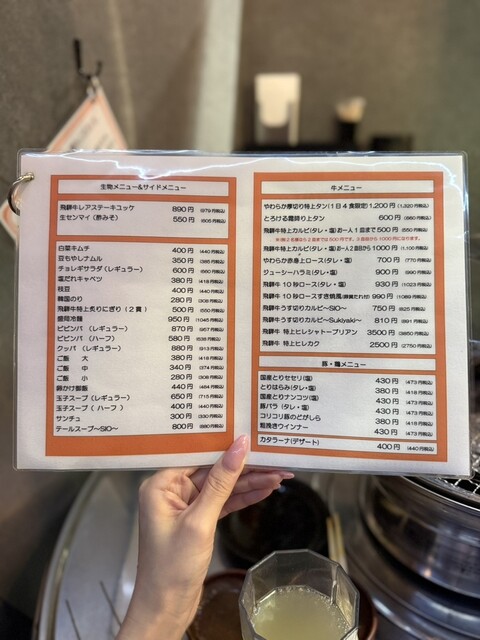 生物メニュー&サイドメニュー
飛騨牛レアステーキユッケ 890円(979円税込)
生センマイ(酢みそ) 550円(605円税込)
白菜キムチ 400円(440円税込)
豆もやしナムル 350円(385円税込)
チョレギサラダ(レギュラー) 600円(660円税込)
塩だれキャベツ 380円(418円税込)
枝豆 400円(440円税込)
韓国のり 280円(308円税込)
飛騨牛特上炙りにぎり(2貫) 500円(550円税込)
盛岡冷麺 950円(1045円税込)
ビビンバ(レギュラー) 870円(957円税込)
ビビンバ(ハーフ) 580円(638円税込)
クッパ(レギュラー) 880円(913円税込)
ご飯 大 380円(418円税込)
ご飯 中 340円(374円税込)
ご飯 小 280円(308円税込)
豚かけ御飯 440円(484円税込)
玉子スープ(レギュラー) 650円(715円税込)
玉子スープ(ハーフ) 400円(440円税込)
サンチュ 300円(330円税込)
テールスープ〜SIO〜 800円(880円税込)
牛メニュー
やわらか厚切り特上タン(1日4食限定) 1,200円(1,320円税込)
とろける霜降り上タン 600円(660円税込)
飛騨牛特上カルビ(タレ・塩)お一人1皿まで 500円(550円税込)
飛騨牛特上カルビ(タレ・塩)お一人2皿目から 1000円(1,100円税込)
やわらか赤身上ロース(タレ・塩) 700円(770円税込)
ジューシーハラミ(タレ・塩) 900円(990円税込)
飛騨牛10秒ロース(タレ・塩) 930円(1023円税込)
飛騨牛10秒ロースすき焼風 990円(1089円税込)
飛騨牛うすぎりカルビ〜SIO〜 750円(825円税込)
飛騨牛うすぎりカルビ〜Sukiyaki〜 810円(891円税込)
飛騨牛 特上ヒレシャトーブリアン 3500円(3850円税込)
飛騨牛 特上ヒレカク 2500円(2750円税込)
豚・鶏メニュー
国産とりセセリ(塩) 430円(473円税込)
とりはらみ(タレ・塩) 380円(418円税込)
国産とりナンコツ(塩) 430円(473円税込)
豚バラ(タレ・塩) 430円(473円税込)
コリコリ豚のどがしら 380円(418円税込)
粗挽きウインナー 430円(473円税込)
カタラーナ(デザート) 400円(440円税込)